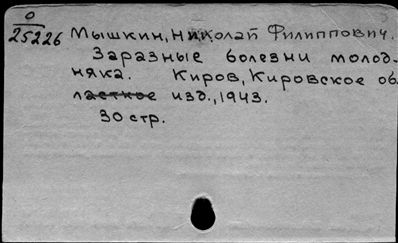 О
25226 Мышкин, Николай Филиппович.
Заразные болезни молод-
няка. Киров, Кировское об-
ластное изд., 1943.
30 стр.